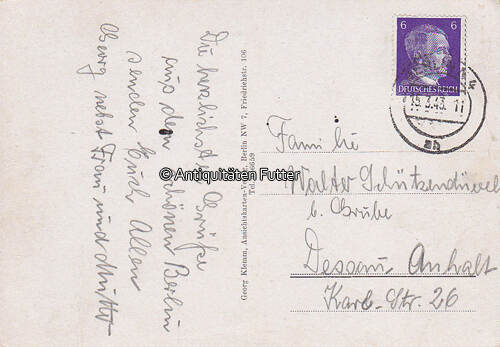 Die herzlichsten Grüße
aus dem schönen Berlin
senden Euch Allen
Georg nebst Frau und Mutter
Georg Klemm, Ansichtskarten-Verlag, Berlin NW 7, Friedrichstr. 106
Tel.
6
6
DEUTSCHES REICH
15.3.43. 11
© Antiquitäten Futter
Familie
Walter Schützendüvel
b. Grube
Dessau-Anhalt
Karl-Str. 26